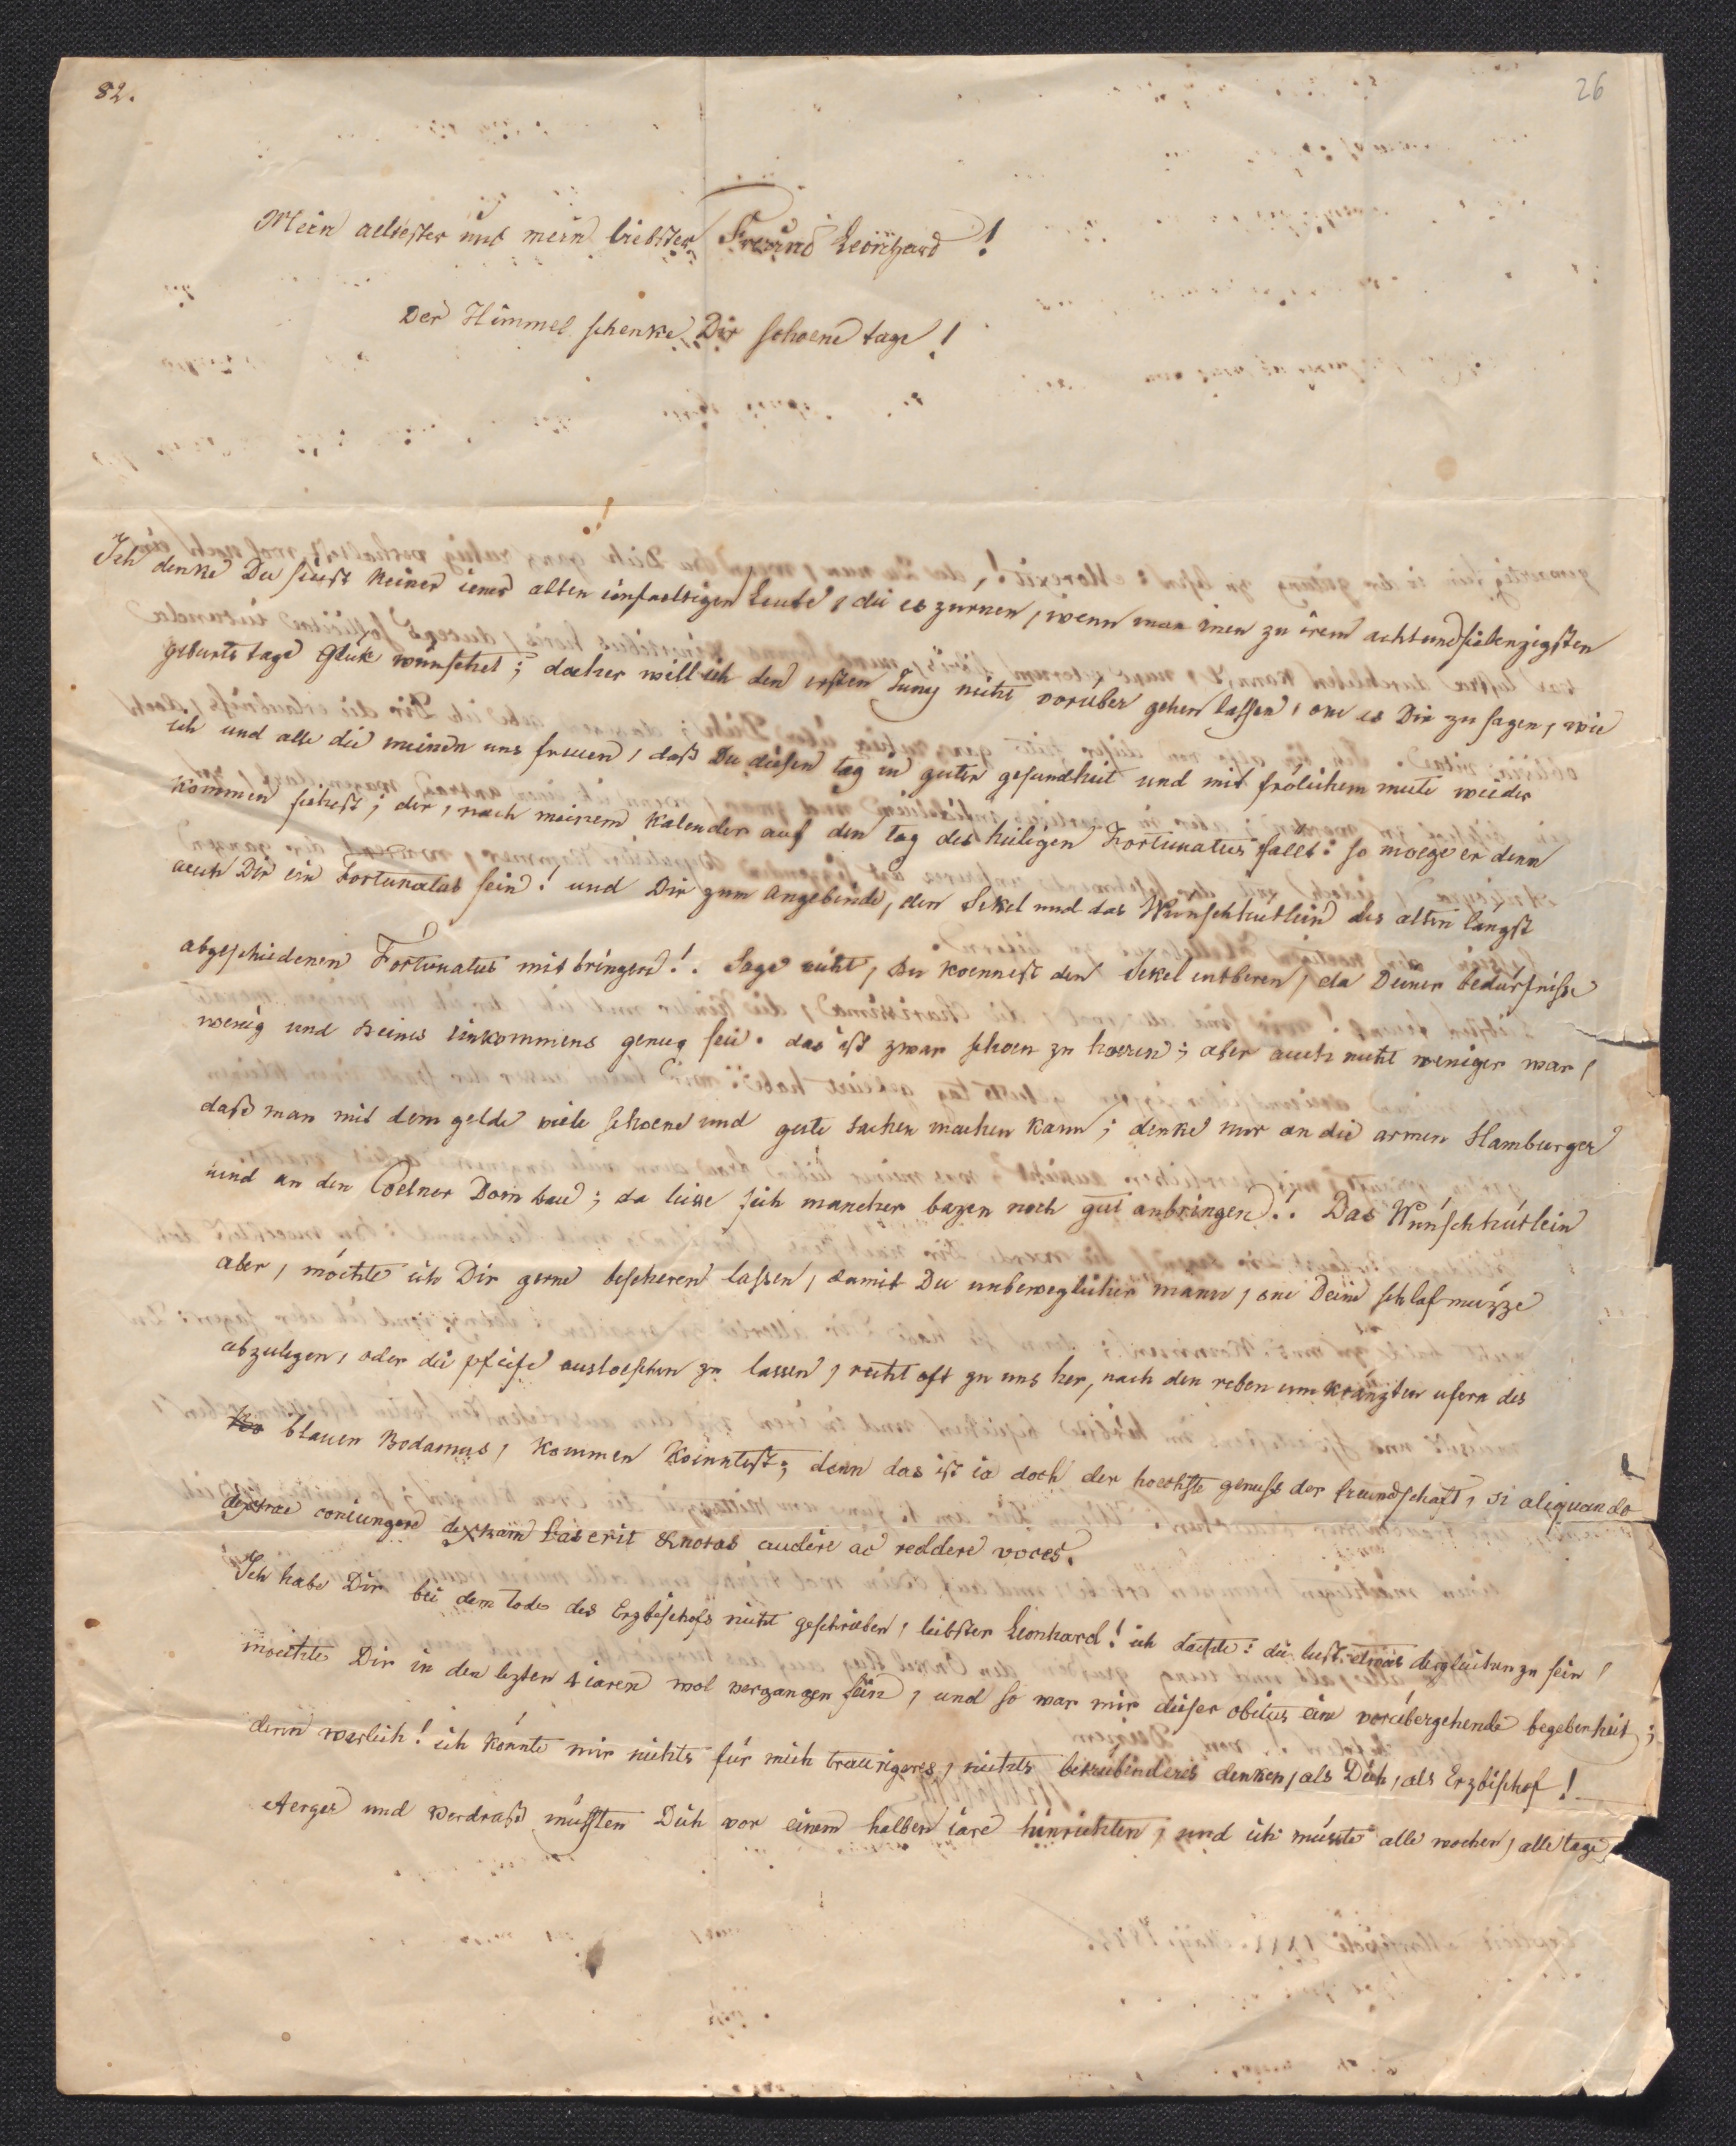 82.
26
Mein aeltester und mein liebster Freund Leonhard!
Der Himmel schenke Dir schoene tage!
Ich denke Du seiest keiner iener alten einfaeltigen Leute, die es zurnen, wenn man inen zu irem achtundsiebenzigsten
geburts tage Gluk wünschet; daher will ich den ersten Juny nicht vorüber gehen lassen, one es Dir zu sagen, wie
ich und alle die meinen uns freuen, daß Du diesen tag in guter gesundheit und mit frölichem mute wieder
kommen siehest; der, nach meinem Kalender auf den tag des heiligen Fortunatus fällt: so moege er denn
auch Dir ein Fortunatus sein! und Dir zum angebinde, den Sekel und das Wunschhutlein des alten längst
abgeschiedenen Fortunatus mitbringen!. Sage nicht, Du koennest den Sekel entberen, da Deiner bedürfnisse
wenig und Deines einkommens genug sei. das ist zwar schoen zu hoeren; aber auch nicht weniger war,
daß man mit dem gelde viele schoene und gute sachen machen kann; denke nur an die armen Hamburger
und an den Coelner Dom bau; da liesse sich mancher bazen noch gut anbringen!. Das Wünschhütlein
aber, möchte ich Dir gerne bescheren lassen, damit Du unbeweglicher mann, one Deine schlafmüzze
abzulegen, oder die pfeife ausloeschen zu lassen, recht oft zu uns her, nach den reben umkränzten ufern des
blauen Bodamus, kommen koenntest; denn das ist ia doch der hoechste genuß der freundschaft, si aliquando
dextrae coniungere dextram fas erit & notas audire ac reddere voces.
Ich habe Dir bei dem tode des Erzbischofs nicht geschrieben, liebster Leonhard! ich dachte: die lust etwas dergleichen zu sein,
moechte Dir in den lezten 4 iaren wol vergangen sein, und so war mir dieser obitus eine vorübergehende begebenheit;
denn warlich! ich könnte mir nichts für mich traurigeres, nichts betrubenderes denken, als Dich, als Erzbischof!
Aerger und Verdruß müßten Dich vor einem halben iare hinrichten, und ich müsste alle wochen, alle tage,